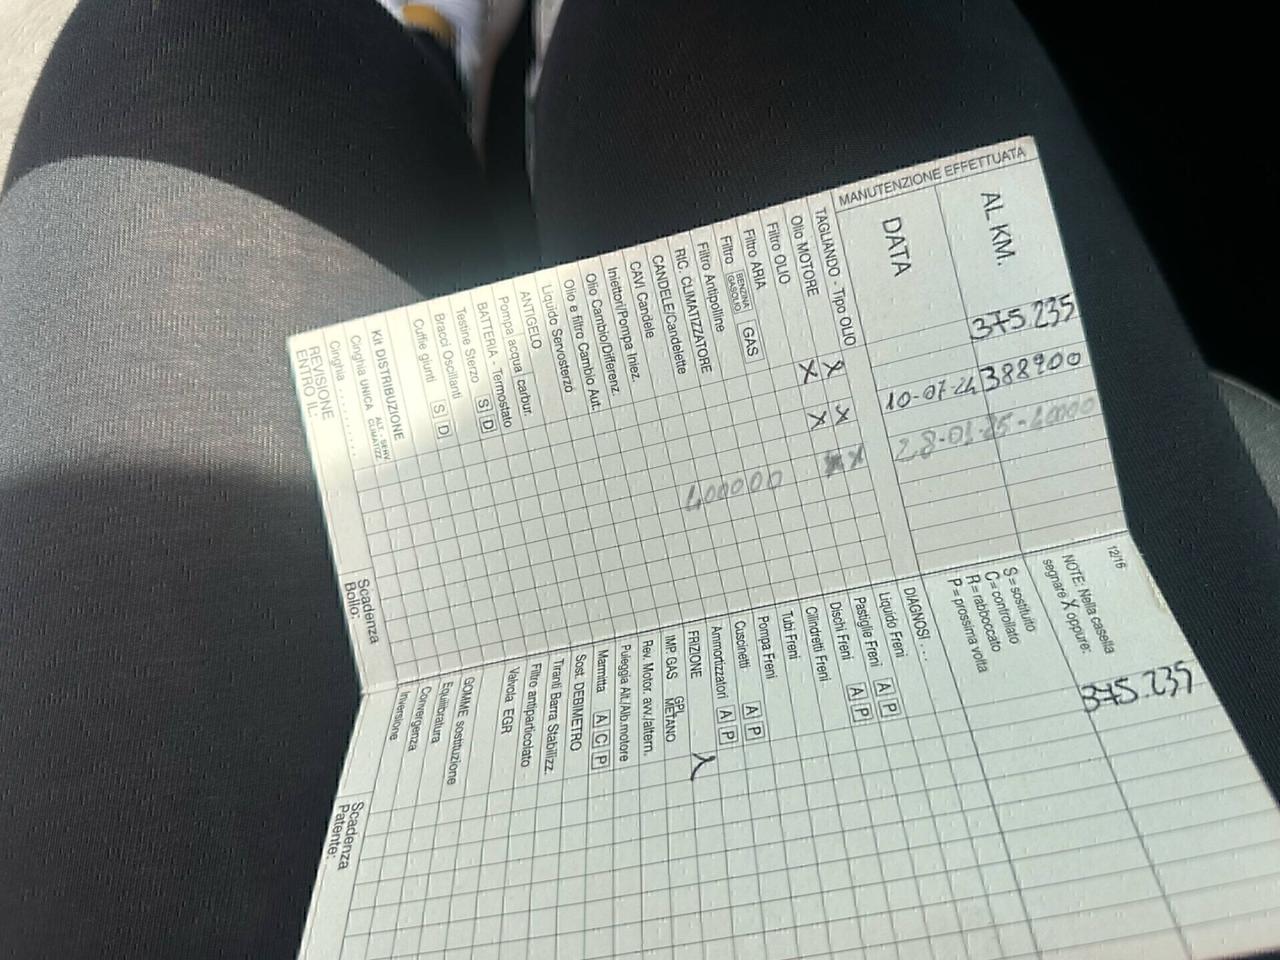 MANUTENZIONE EFFETTUATA
AL KM. 375.235 388900
DATA 10-07-24
TAGLIANDO - Tipo OLIO X X
Olio MOTORE X X
Filtro OLIO
Filtro ARIA
Filtro BENZINA GASOLIO GAS
Filtro Antipolline
RIC. CLIMATIZZATORE
CANDELE/Candelette
CAVI Candele
Iniettori/Pompa Iniez.
Olio Cambio/Differenz.
Olio e filtro Cambio Aut.
Liquido Servosterzo
ANTIGELO
Pompa acqua carbur.
BATTERIA - Termostato
Testine Sterzo S D
Bracci Oscillanti
Cuffie giunti S D
Kit DISTRIBUZIONE
Cinghia UNICA ALT. - SERV. CLIMATIZZ.
Cinghia ..........
REVISIONE
ENTRO IL:
Scadenza
Bollo:
12/16
NOTE: Nella casella
segnare X oppure:
S = sostituito
C = controllato
R = rabboccato
P = prossima volta
375.235
DIAGNOSI ....
Liquido Freni
Pastiglie Freni A P
Dischi Freni A P
Cilindretti Freni
Tubi Freni
Pompa Freni
Cuscinetti A P
Ammortizzatori A P
FRIZIONE X
IMP. GAS GPL METANO
Rev. Motor. avv./altern.
Puleggia Alt./Alb.motore
Marmitta A C P
Sost. DEBIMETRO
Tiranti Barra Stabilizz.
Filtro antiparticolato
Valvola EGR
GOMME sostituzione
Equilibratura
Convergenza
Inversione
Scadenza
Patente: